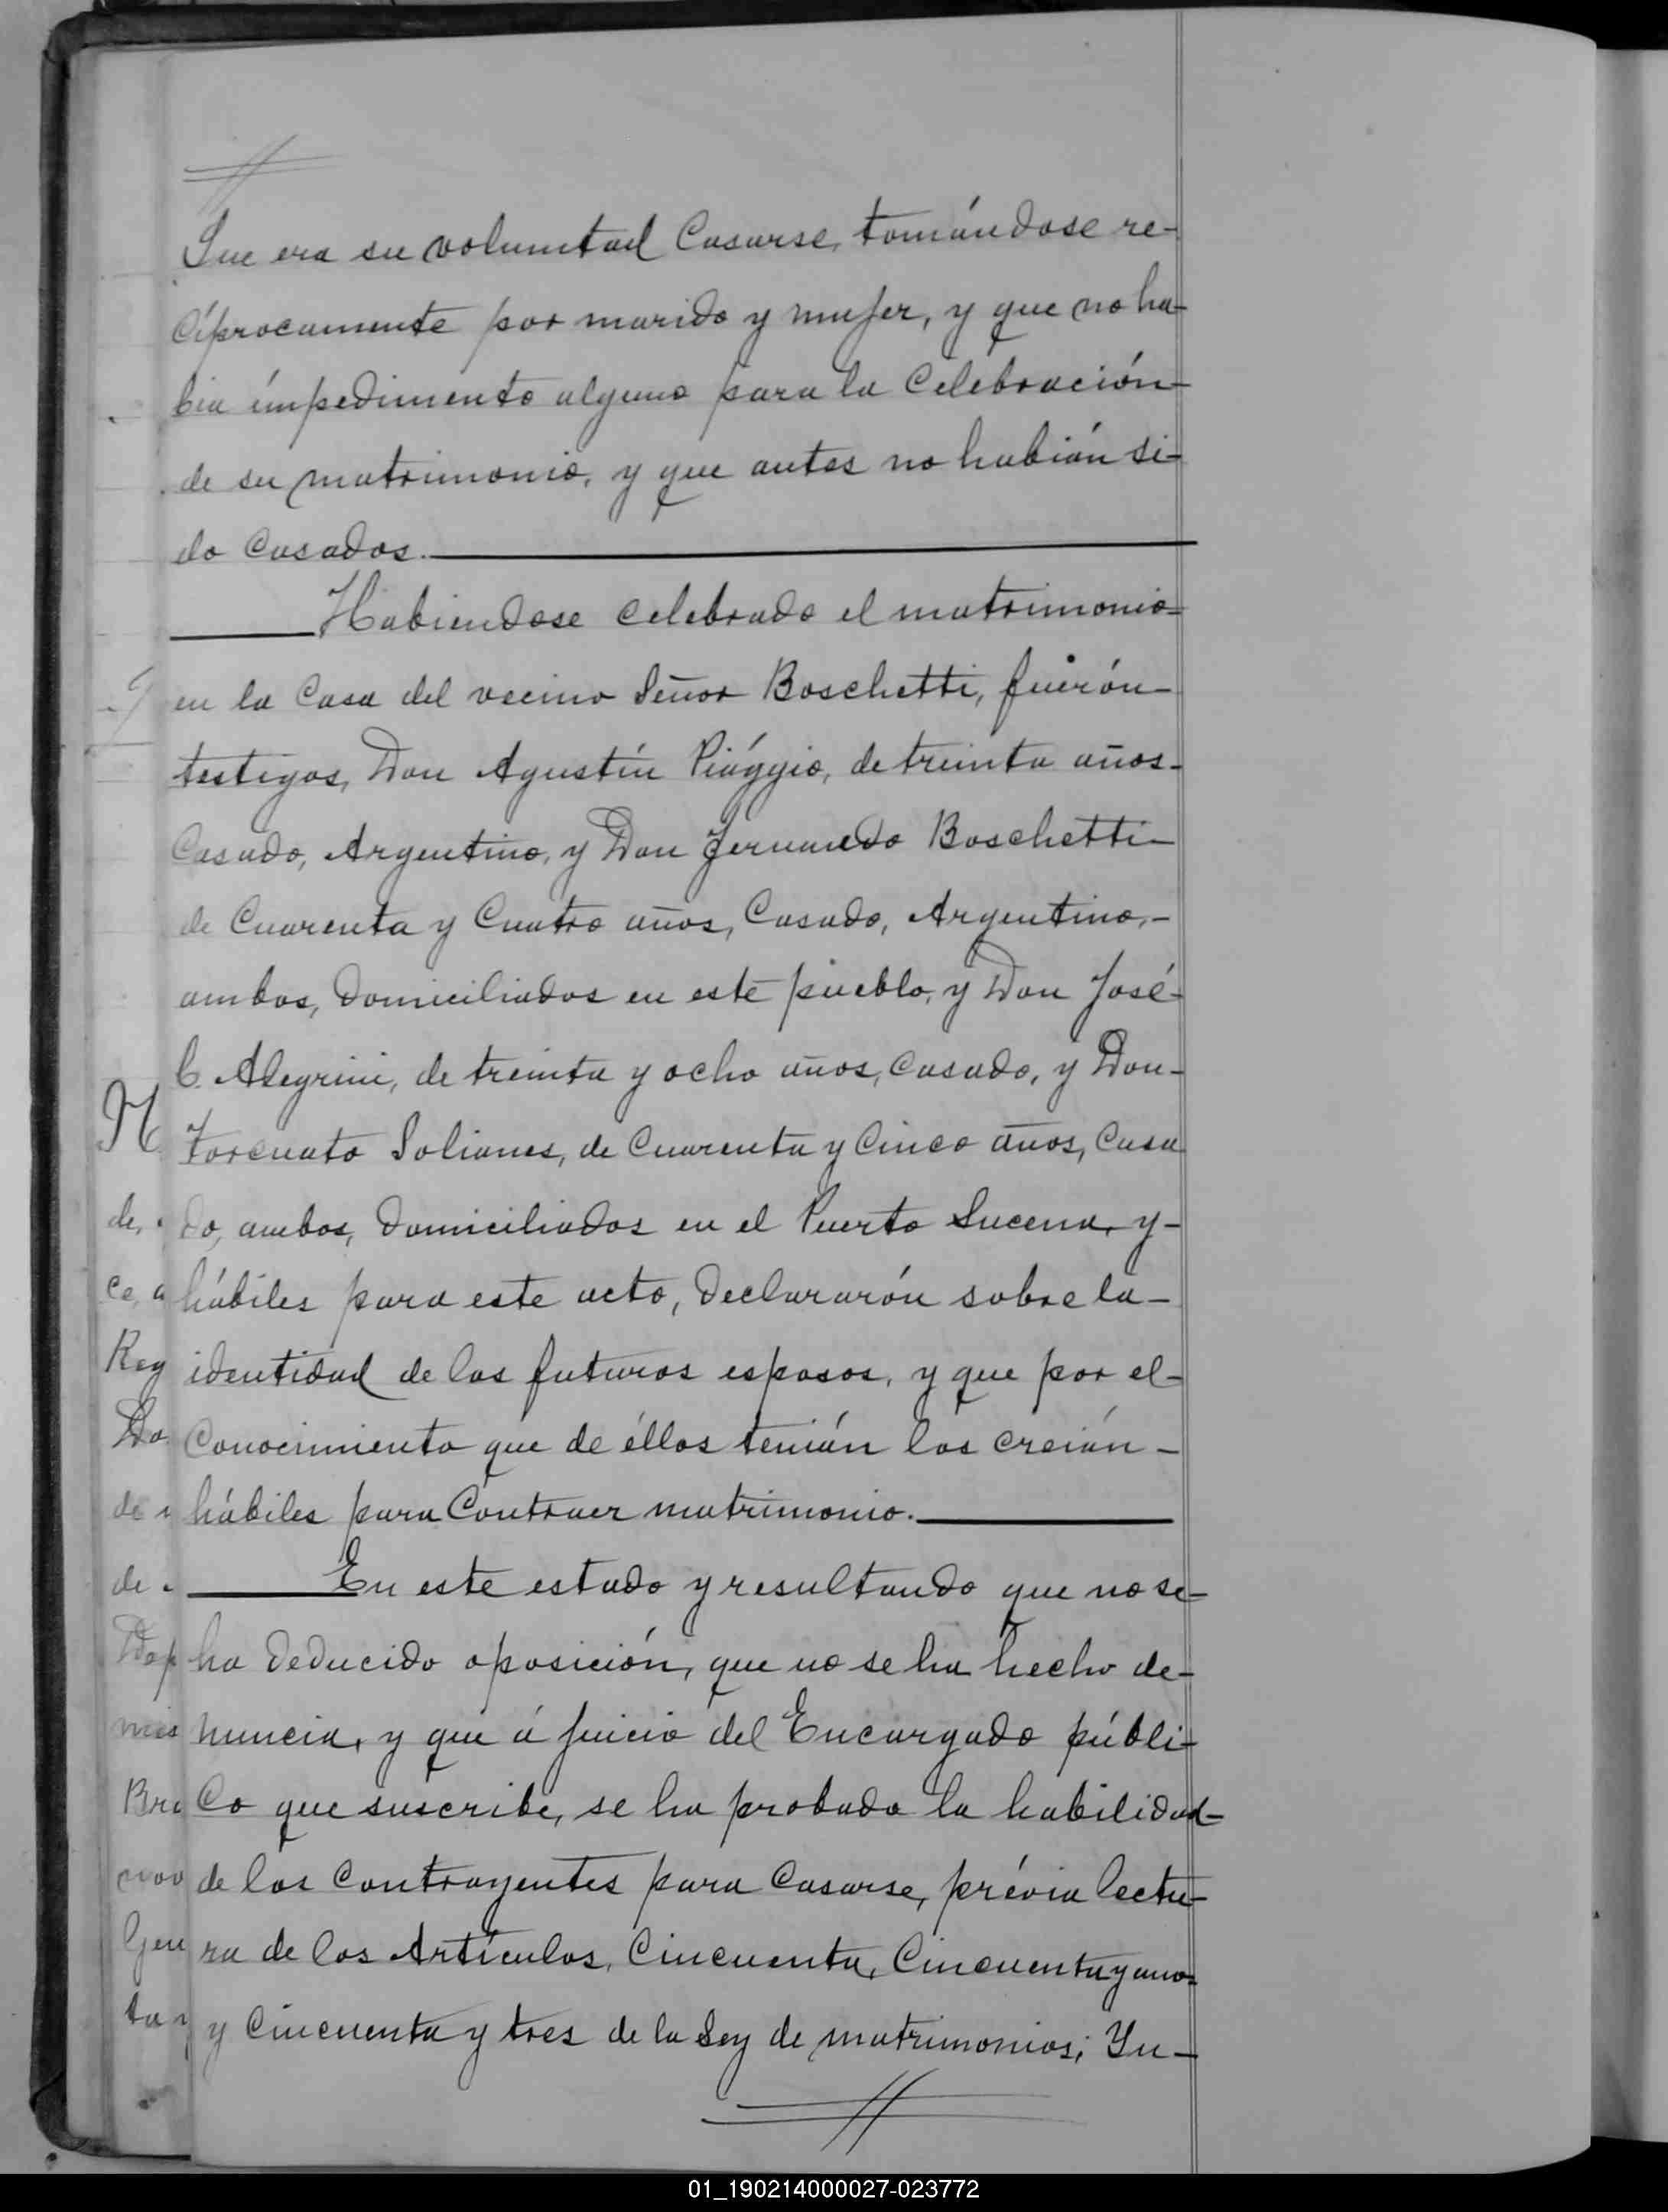 Que era su voluntad Casarse, tomándose re-
cíprocamente por marido y mujer, y que no ha-
bia ímpedimento alguno para la Celebración-
de su matrimonio, y que antes no habián si-
do Casados.
Habiendose Celebrado el matrimonio-
en la Casa del vecino Señor Boschetti, fuerón-
testigos, Don Agustín Piággio, de treinta años-
Casado, Argentino, y Don Fernando Boschetti-
de Cuarenta y Cuatro años, Casado, Argentino,-
ambos, domiciliados en este pueblo, y Don José-
C. Alegrini, de treinta y ocho años, Casado, y Don-
Torcuato Solianes, de Cuarenta y Cinco años, Casa
do, ambos, domiciliados en el Puerto Lucena, y-
hábiles para este acto, declararón sobre la-
identidad de los futuros esposos, y que por el-
Conocimiento que de éllos tenián los creián-
hábiles para Contraer matrimonio.
En este estado y resultando que no se-
ha deducido oposición, que no se ha hecho de-
nuncia, y que á juicio del Encargado públi-
Co que suscribe, se ha probado la habilidad-
de los Contrayentes para Casarse, prévia lectu-
ra de los Artículos, Cincuenta, Cincuenta y uno-
y Cincuenta y tres de la Ley de matrimonios; Yu-
01_190214000027-023772